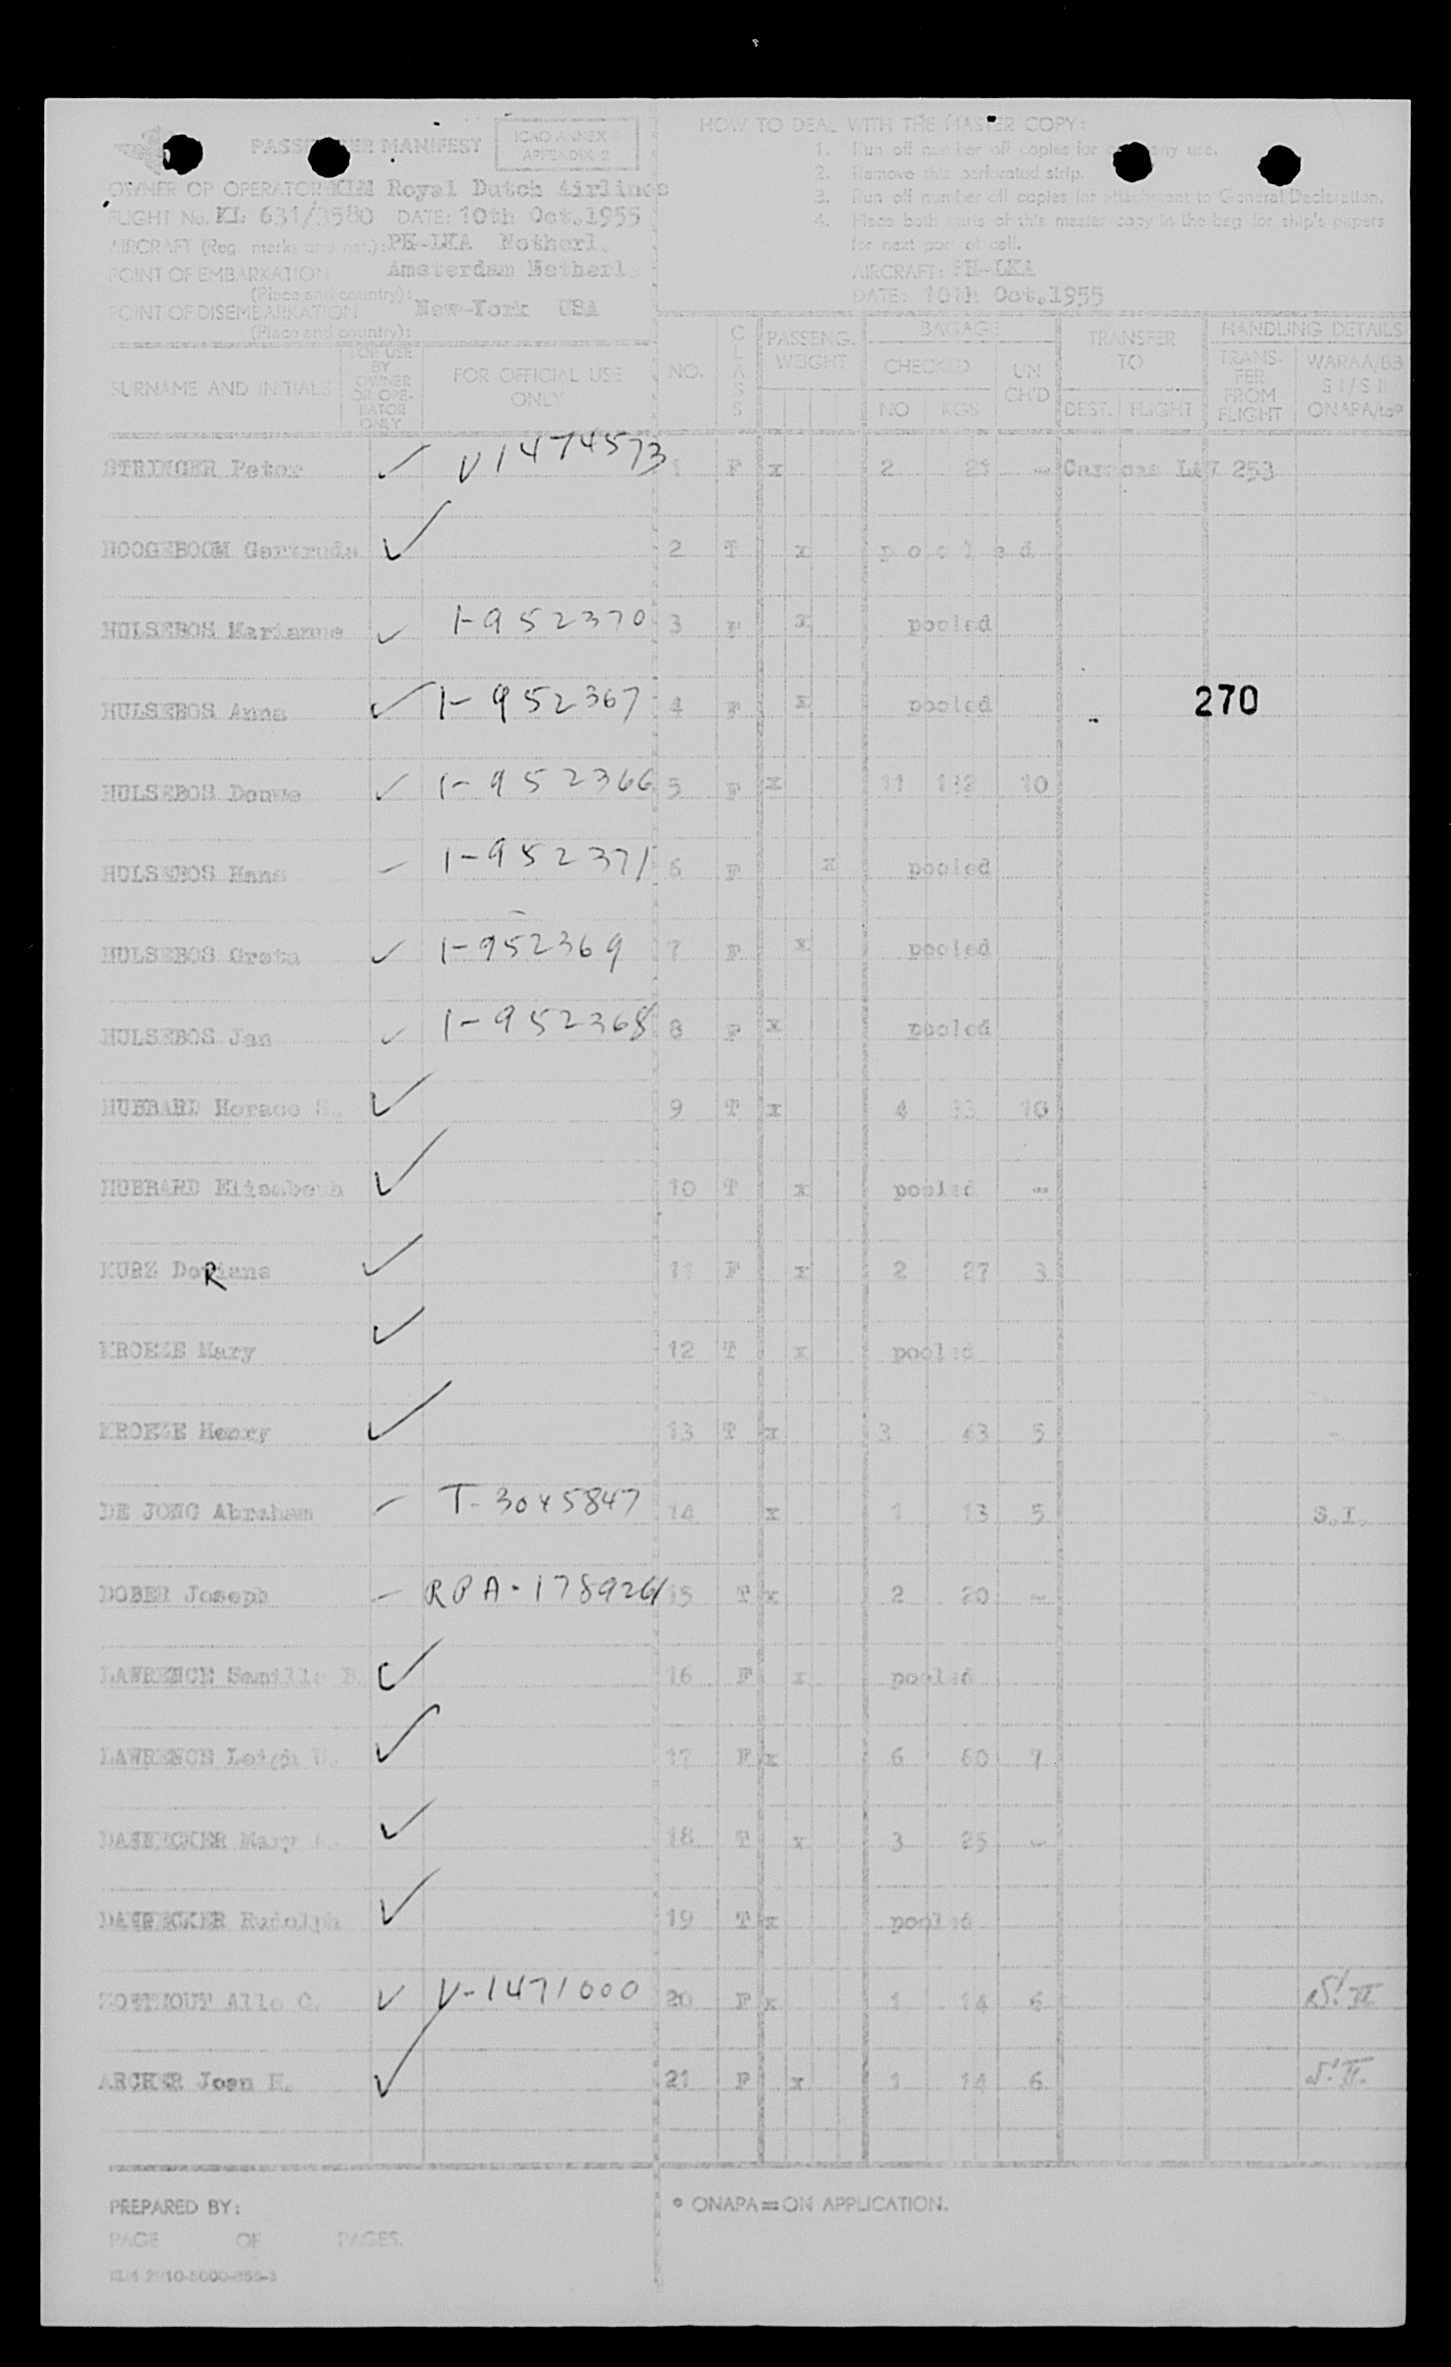 PASSENGER MANIFEST
ICAO ANNEX 9
APPENDIX 2
OWNER OR OPERATOR: KLM Royal Dutch Airlines
FLIGHT No. KL 631/3580 DATE: 10th Oct.1955
AIRCRAFT (Reg. marks and nat.): PH-LKA Netherl.
POINT OF EMBARKATION Amsterdam Netherl.
(Place and country):
POINT OF DISEMBARKATION New-York USA
(Place and country):
HOW TO DEAL WITH THE MASTER COPY:
1. Run off number off copies for company use.
2. Remove this perforated strip.
3. Run off number off copies for attachment to General Declaration.
4. Place both parts of this master copy in the bag for ship's papers
for next port of call.
AIRCRAFT: PH-LKA
DATE: 10th Oct.1955
SURNAME AND INITIALS
FOR USE BY OWNER OR OPERATOR ONLY
FOR OFFICIAL USE ONLY
NO. CLASS PASSENG. WEIGHT BAGAGE CHECKED NO KGS UN CH'D TRANSFER TO DEST. FLIGHT HANDLING DETAILS TRANSFER FROM FLIGHT WARAA/BB S I/S I ONAPA/
STRINGER Peter ✓ V1474573 1 F x 2 21 - Caracas LAV 253
HOOGEBOOM Gertruda ✓ 2 T x pooled
HULSEBOS Marianne ✓ 1-952370 3 F x pooled
HULSEBOS Anna ✓ 1-952367 4 F x pooled 270
HULSEBOS Douwe ✓ 1-952366 5 F x 11 132 10
HULSEBOS Hans - 1-952371 6 F x pooled
HULSEBOS Greta ✓ 1-952369 7 F x pooled
HULSEBOS Jan ✓ 1-952368 8 F x pooled
HUBBARD Horace ✓ 9 T x 4 10
HUBBARD Elisabeth ✓ 10 T x pooled -
KURZ DoRiana ✓ 11 F x 2 27 3
KROEZE Mary ✓ 12 T x pooled
KROEZE Henry ✓ 13 T x 3 43 5
DE JONG Abraham - T-3045847 14 x 1 13 5 S.I.
DOBER Joseph - RPA-178926 15 T x 2 20 -
LAWRENCE Camille B. ✓ 16 F x pooled
LAWRENCE Leigh ✓ 17 F x 6 60 7
DAENECKER Mary ✓ 18 T x 3 25 -
DAENECKER Rudolph ✓ 19 T x pooled
Allo C. ✓ V-1471000 20 F x 1 14 6 S! II
ARCHER Joan H. ✓ 21 F x 1 14 6 S! II.
PREPARED BY:
PAGE OF PAGES.
* ONAPA=ON APPLICATION.